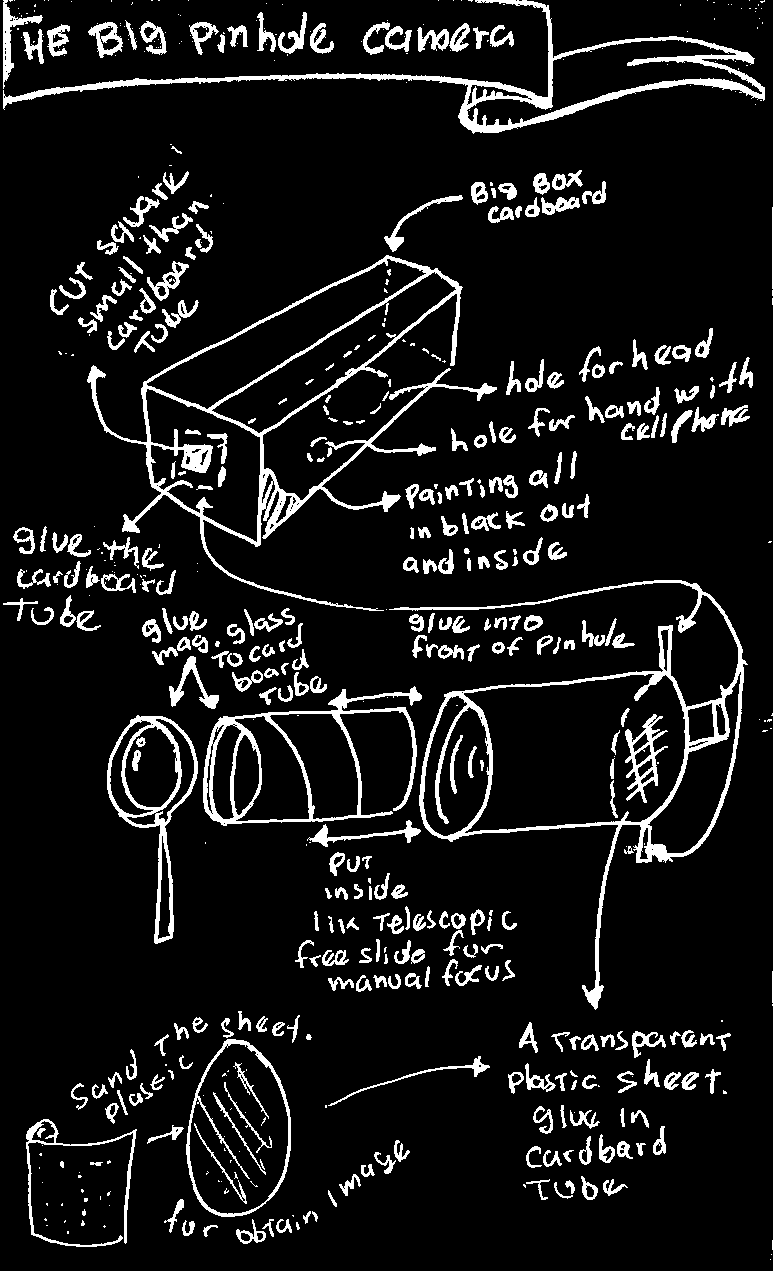 THE BIG PINHOLE CAMERA
BIG BOX
cardboard
CUT square
small than
cardboard
TUBE
hole for head
hole for hand with
cellphone
Painting all
in black out
and inside
glue the
cardboard
TUBE
glue
mag. glass
TO card
board
TUBE
glue INTO
front of Pinhole
PUT
inside
lik Telescopic
free slide for
manual focus
Sand The sheet.
plastic
for obtain image
A Transparent
plastic sheet.
glue in
cardbard
TUBE